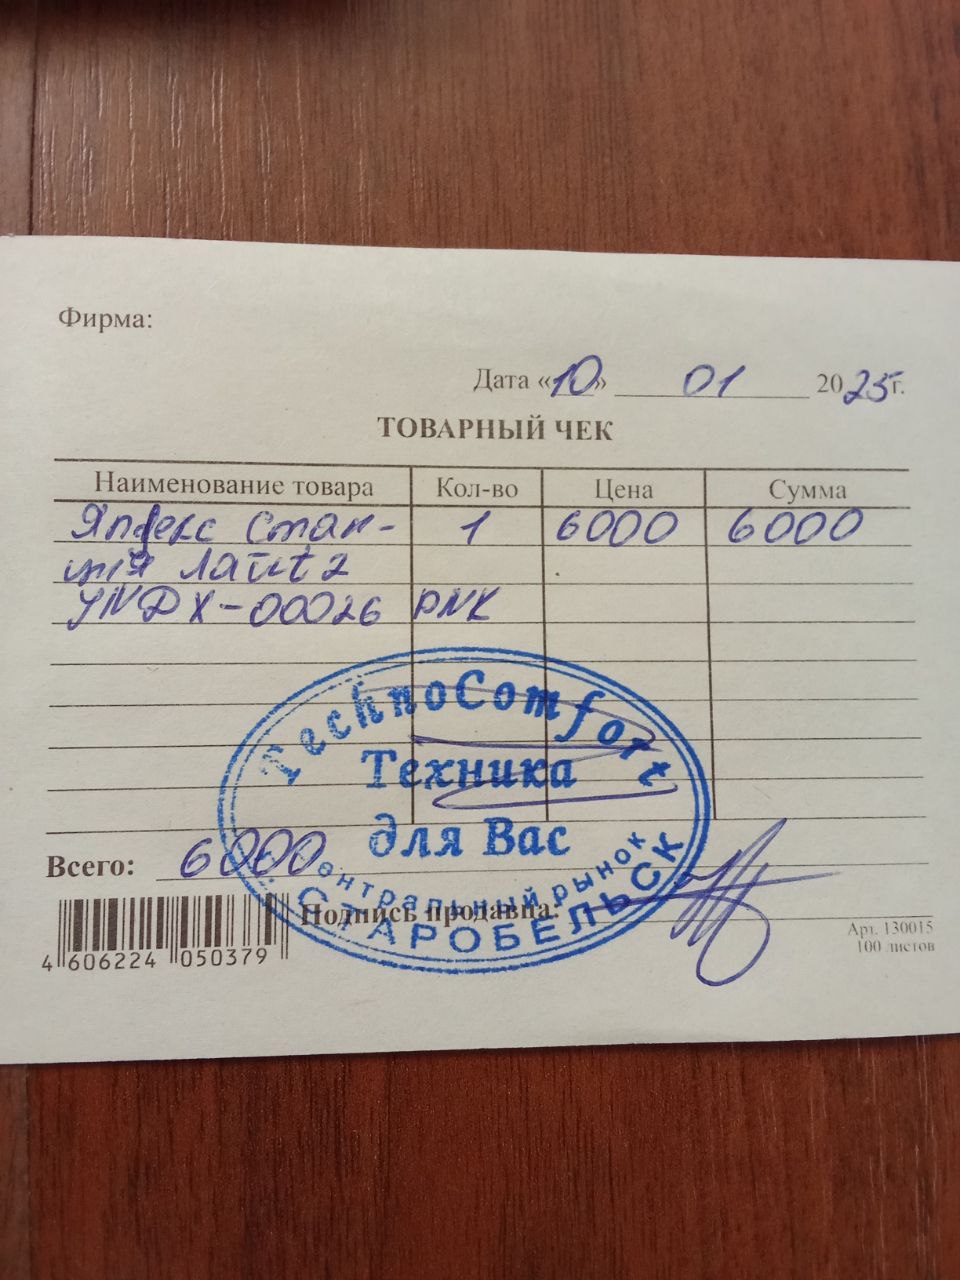 Фирма:
Дата «10» 01 2025г.
ТОВАРНЫЙ ЧЕК
Наименование товара Кол-во Цена Сумма
Яндекс Стан- 1 6000 6000
ция Лайt 2
YNDX-00026 PNK
TechnoComfort
Техника
для Вас
Центральный рынок
г. СТАРОБЕЛЬСК
Всего: 6000
Подпись продавца:
4 606224 050379
Арт. 130015
100 листов